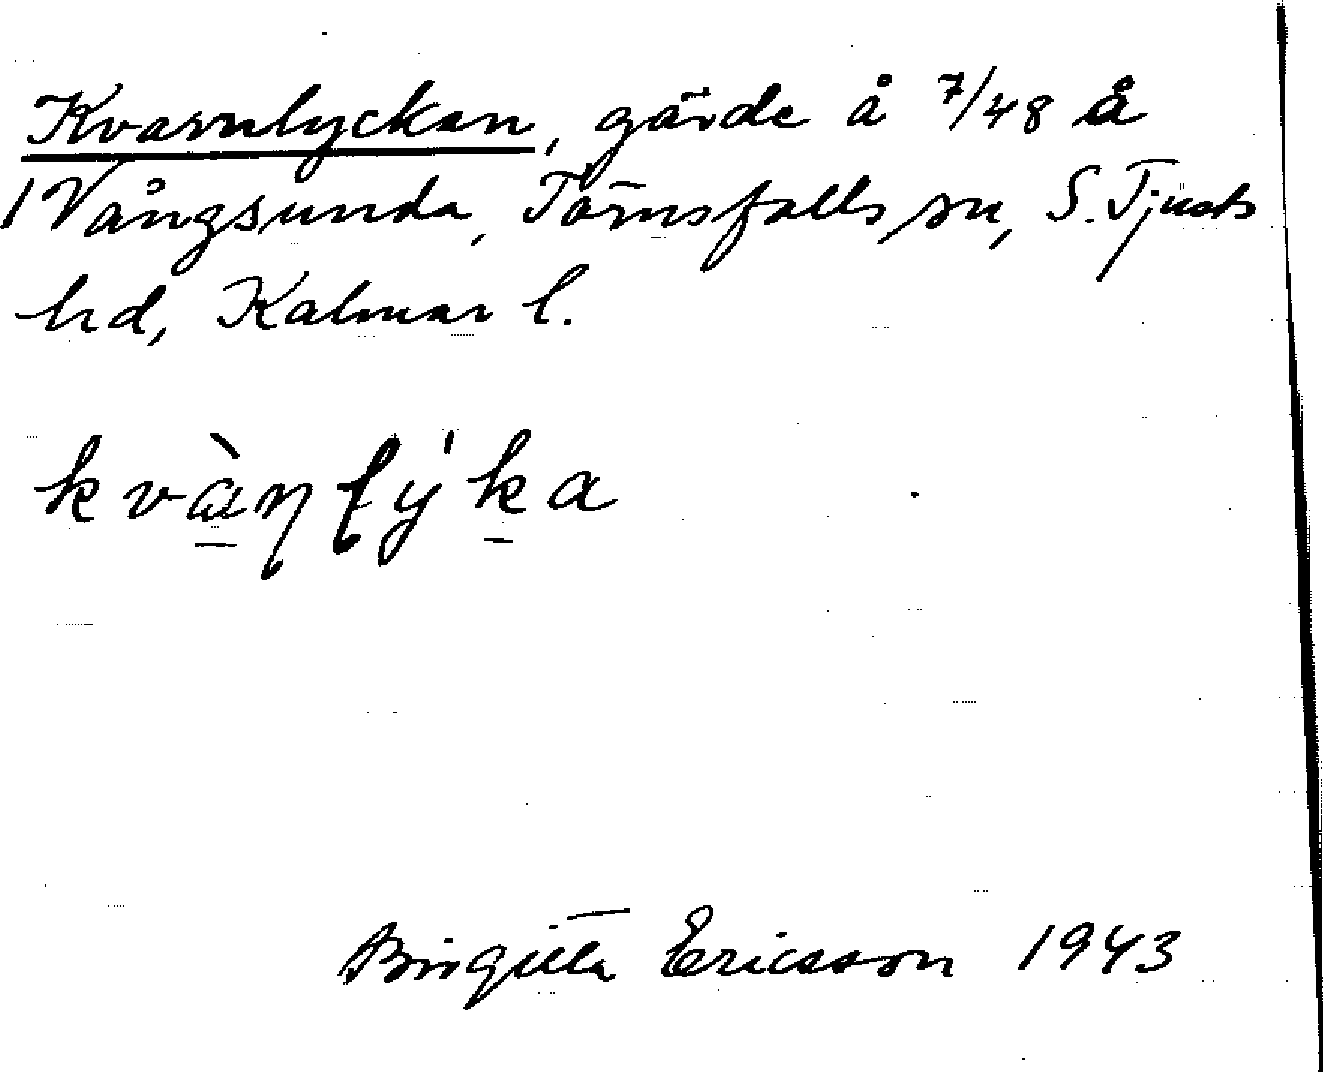 Kvarnlyckan, gärde å 7/48 å
1 Vångsunda, Törnsfalls sn, S. Tjusts
hd, Kalmar l.
kvànļy̍ka
Birgitta Ericsson 1943